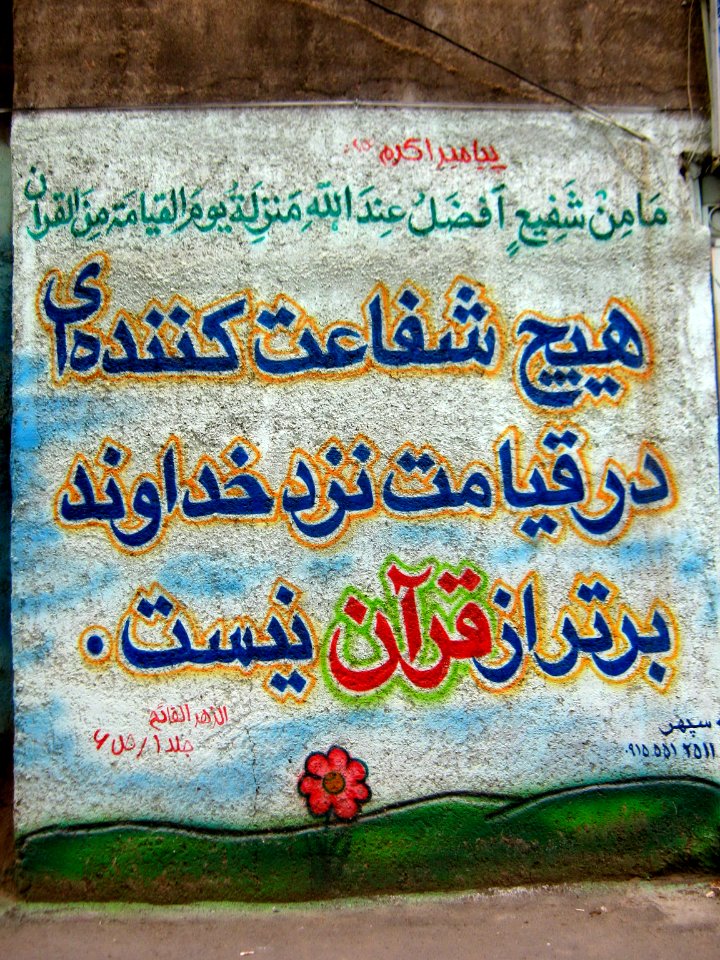 پیامبر اکرم
مَا مِنْ شَفِیعٍ اَفضَلُ عِندَ اللهِ مَنزِلَةُ یومَ القیامَة مِنَ القرآن
هیچ شفاعت کننده‌ای
در قیامت نزد خداوند
برتر از قرآن نیست.
جلد ۱ /
سپهر
۰۹۱۵ ۵۵۱ ۲۵۱۱